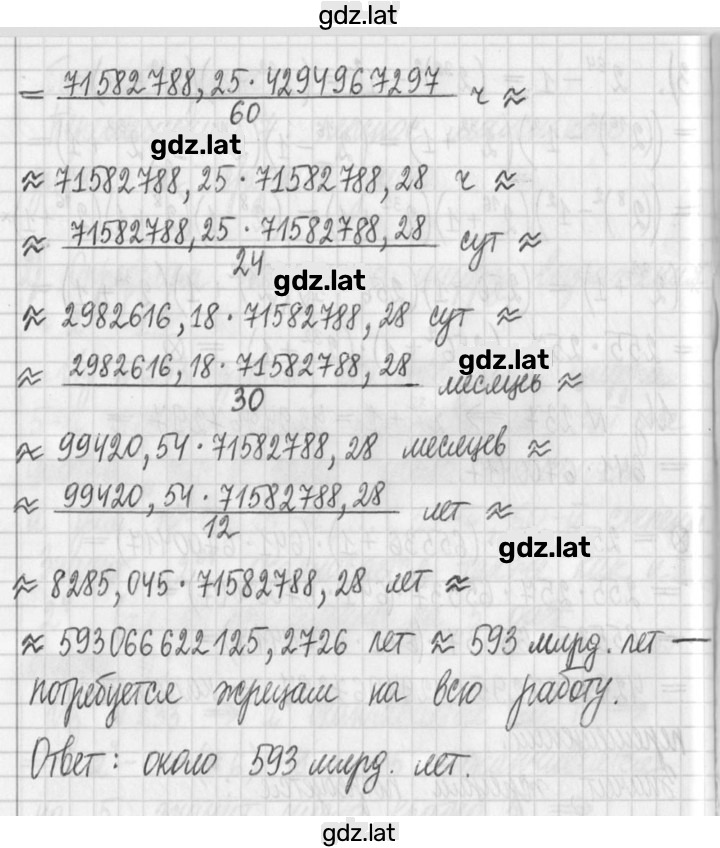 gdz.lat
= 71582788,25 · 4294967297 / 60 ч ≈
gdz.lat
≈ 71582788,25 · 71582788,28 ч ≈
≈ 71582788,25 · 71582788,28 / 24 сут ≈
gdz.lat
≈ 2982616,18 · 71582788,28 сут ≈
gdz.lat
≈ 2982616,18 · 71582788,28 / 30 месяцев ≈
≈ 99420,54 · 71582788,28 месяцев ≈
≈ 99420,54 · 71582788,28 / 12 лет ≈
gdz.lat
≈ 8285,045 · 71582788,28 лет ≈
≈ 593066622125,2726 лет ≈ 593 млрд. лет —
потребуется жрецам на всю работу.
Ответ: около 593 млрд. лет.
gdz.lat